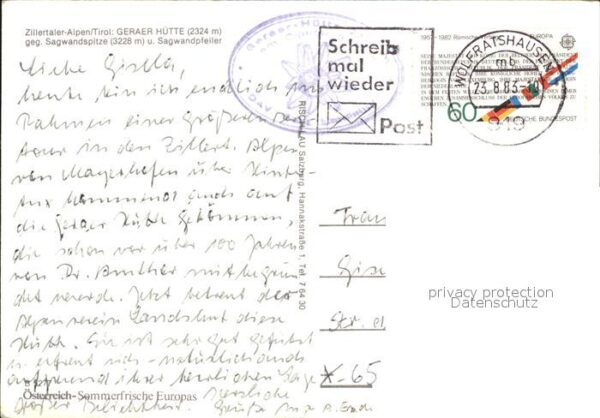 Zillertaler-Alpen/Tirol: GERAER HÜTTE (2324 m)
geg. Sagwandspitze (3228 m) u. Sagwandpfeiler
Geraer-Hütte
Liebe Gisela,
heute bin ich endlich im
Rahmen einer größeren
tour in den Zillert. Alpen
von Mayrhofen über Hinter-
tux kommend auch auf
die Geraer Hütte gekommen,
die schon vor über 100 Jahren
von Dr. mitbegrün-
det wurde. Jetzt betreut der
Alpenverein Landshut diese
Hütte. Sie ist sehr gut geführt
u. erfreut sich - natürlich auch
aufgrund ihrer herrlichen Lage
großer Beliebtheit. Herzliche
Grüße
Österreich-Sommerfrische Europas
RISCH-LAU Salzburg, Hannakstraße 1, Tel. 7 64 30
Schreib
mal
wieder
Post
WOLFRATSHAUSEN
mb
23.8.83
819
1957-1982 Römische
EUROPA
60
DEUTSCHE BUNDESPOST
Frau
Gise
Str. d
X-65
privacy protection
Datenschutz